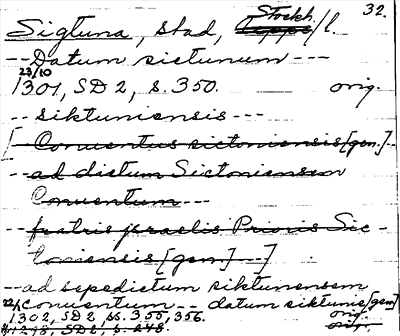 32.
Stockh.
Sigtuna, stad, Uppl/l.
--Datum sictunum ---
23/10
1301, SD 2, s. 350. orig.
-- siktuniensis ---
[- Conuentus sictoniensis [gen.]--
-- ad dictum Sictoniensem
Conuentum ---
-- fratris israelis Prioris Sic-
toniensis [gen] --]
-- ad sepedictum siktunensem
conuentum -- datum siktunis [gen]
1302, SD 2, ss. 355, 356. orig.
1298, SD 2, s. 248. orig.